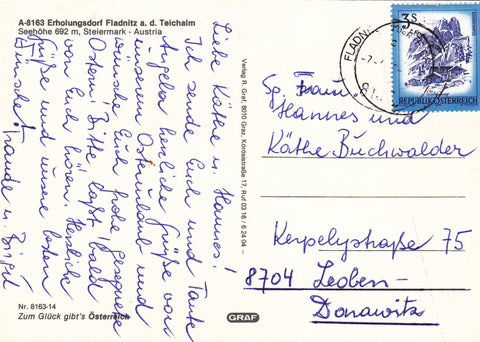 A-8163 Erholungsdorf Fladnitz a. d. Teichalm
Seehöhe 692 m, Steiermark - Austria
Liebe Käthe u. Hannes!
Ich sende Euch und Tante
Angela herzliche Grüße von
unserem Osterurlaub und
wünsche Euch frohe gesegnete
Ostern! Bitte laßt bald
von Euch hören. Herzliche
Grüße und unsere besten
Wünsche! Traude u. Birgit
Nr. 8163-14
Zum Glück gibt's Österreich
Verlag R. Graf, 8010 Graz, Körösistraße 17, Ruf 03 16 / 6 24 04 –
GRAF
3 S
REPUBLIK ÖSTERREICH
FLADNI
Hannes und
Käthe Buchwalder
Kerpelystraße 75
8704 Leoben-
Donawitz